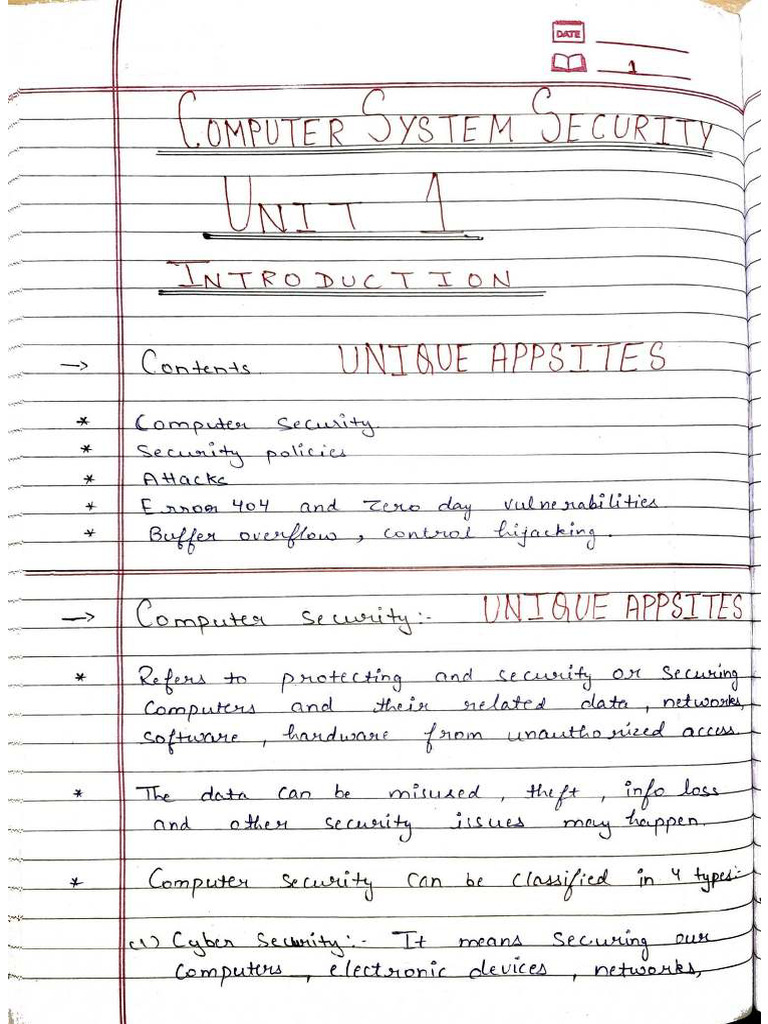 DATE
1
COMPUTER SYSTEM SECURITY
UNIT 1
INTRODUCTION
→ Contents UNIQUE APPSITES
* Computer security.
* Security policies
* Attacks
* Error 404 and zero day vulnerabilities
* Buffer overflow, control hijacking.
→ Computer security:- UNIQUE APPSITES
* Refers to protecting and security or securing
computers and their related data, networks,
software, hardware from unauthorized access.
* The data can be misused, theft, info loss
and other security issues may happen.
* Computer security can be classified in 4 types:-
(1) Cyber security:- It means securing our
computers, electronic devices, networks,